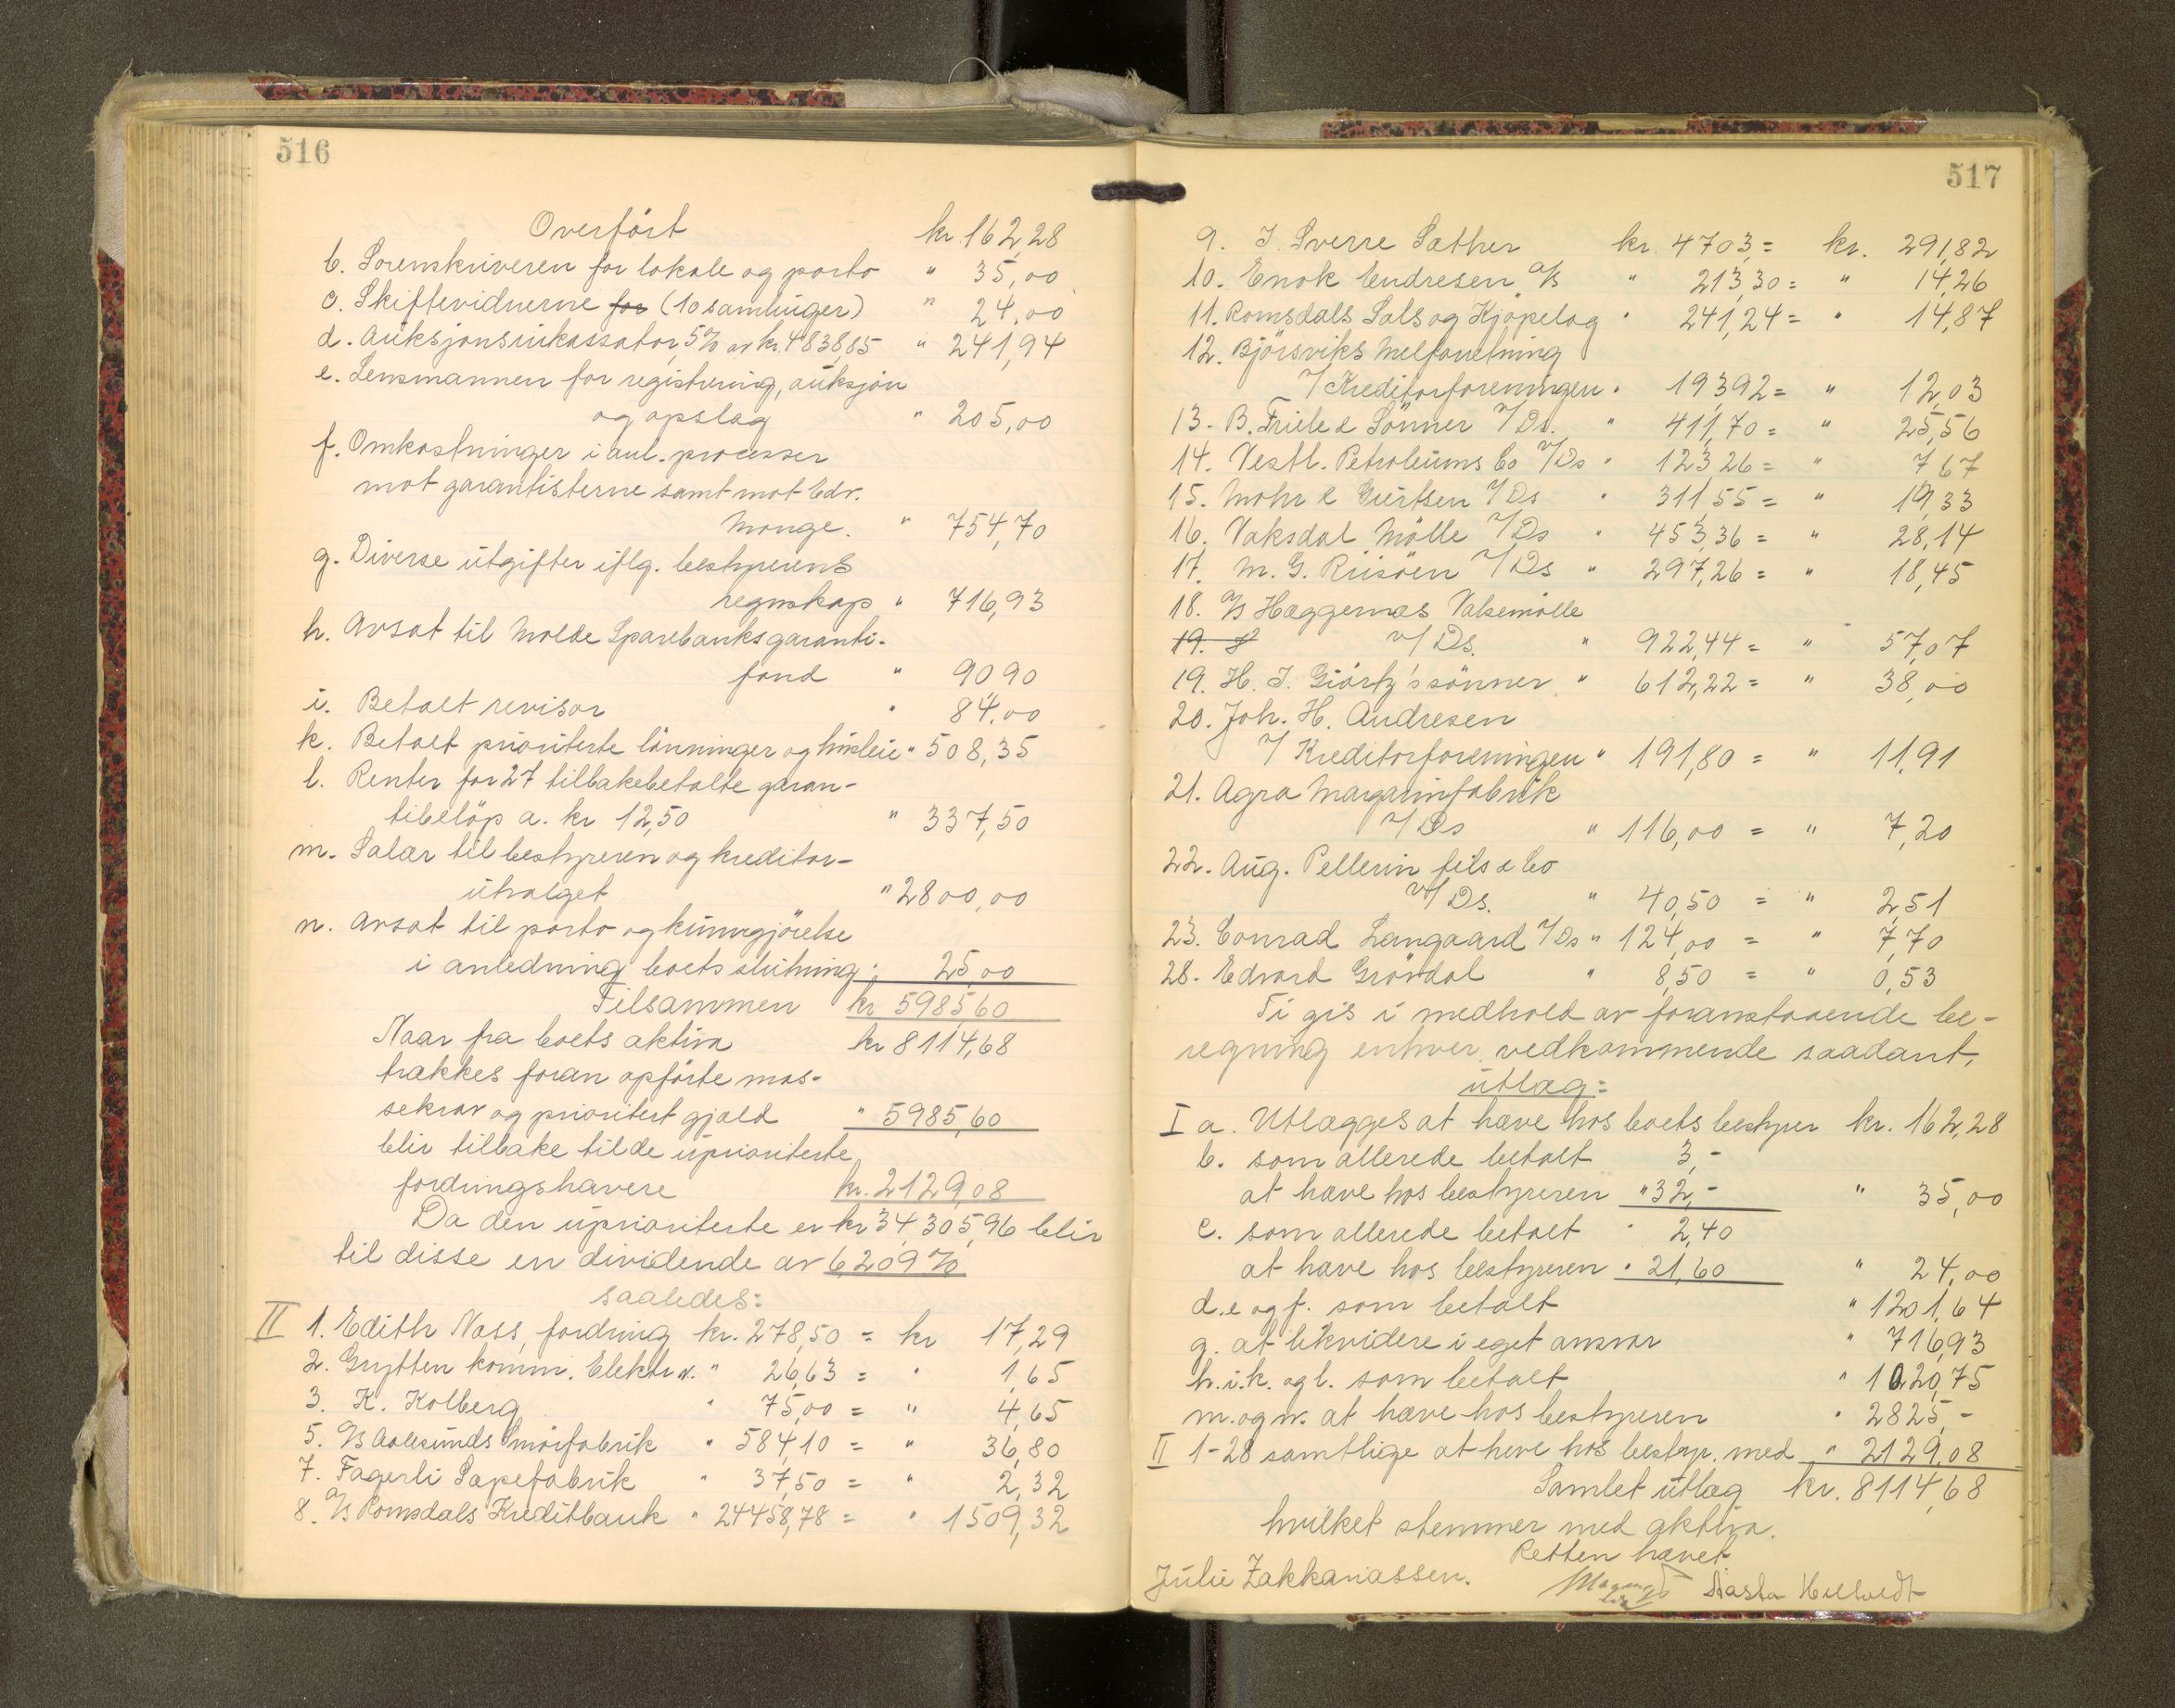 516
Overført kr. 162,28
b. Sorenskriveren for lokale og porto " 35,00
c. Skiftevidnerne for (10 samlinger) " 24.00
d. Auksjonsinkassator, 5% av kr. 4838,85 " 241,94
e. Lensmannen for registrering, auksjon
og opslag " 205,00
f. Omkostninger i anl. processer
mot garantisterne samt mot Edv.
Monge. " 754,70
g. Diverse utgifter iflg. bestyrerens
regnskap " 716,93
h. Avsat til Molde Sparebanks garanti-
fond " 90 90
i. Betalt revisor " 84.00
k. Betalt prioriterte lønninger og husleie " 508,35
l. Renter for 27 tilbakebetalte garan-
tibeløp a. kr 12,50 " 337,50
m. Salær til bestyreren og kreditor-
utvalget " 2800,00
n. Avsat til porto og kunngjørelse
i anledning boets slutning " 25,00
Tilsammen kr 5985,60
Naar fra boets aktiva kr 8114,68
trækkes foran opførte mas-
sekrav og prioritert gjæld " 5985,60
blir tilbake til de uprioriterte
fordringshavere kr. 2129,08
Da den uprioriterte er kr 34,305,96 blir
til disse en dividende av 6209 %
saaledes:
II 1. Edith Næss, fordring kr. 278,50 = kr 17,29
2. Grytten komm. Elektr.v. " 26,63 = " 1,65
3. K. Kolberg " 75,00 = " 4,65
5. A/S Aalesunds Smørfabrik " 584,10 = " 36,80
7. Fagerli Sæpefabrik " 37,50 = " 2,32
8. A/S Romsdals Kreditbank " 24458,78 = " 1509,32
517
9. J. Sverre Sæther kr. 4703,= kr. 291,82
10. Enok Endresen A/S " 213,30 = " 14,26
11. Romsdals Salg og Kjøpelag " 241,24 = " 14,87
12. Bjørsviks Melforretning
v/ Kreditorforeningen " 193,92 = " 12,03
13. B. Friele & Sønner v/Ds. " 411,70 = " 25,56
14. Vestl. Petroleums Co v/Ds " 123,26 = " 7,67
15. Mohr & Giertsen v/Ds " 311,55 = " 19,33
16. Vaksdal Mølle v/Ds " 453,36 = " 28,14
17. M. G. Riisøen v/Ds " 297,26 = " 18,45
18. A/S Hæggernæs Valsemølle
19. v/Ds. " 922,44 = " 57,07
19. H. J. Giørtz's sønner " 612,22 = " 38,00
20. Joh. H. Andresen
v/ Kreditorforeningen " 191,80 = " 11,91
21. Agra Margarinfabrik
v/Ds " 116,00 = " 7,20
22. Aug. Pellerin fils & Co
v/Ds. " 40,50 = " 2,51
23. Conrad Langaard v/Ds " 124,00 = " 7,70
28. Edvard Grøvdal " 8,50 = " 0,53
Ti gis i medhold av foranstaaende be-
regning enhver vedkommende saadant,
utlæg:
I a. Utlægges at hæve hos boets bestyrer kr. 162,28
b. som allerede betalt 3,-
at hæve hos bestyreren " 32,- " 35,00
c. som allerede betalt " 2,40
at hæve hos bestyreren " 21,60 " 24,00
d. e og f. som betalt " 1201,64
g. at likvidere i eget ansvar " 716,93
h. i. k. og l. som betalt " 1020,75
m. og n. at hæve hos bestyreren " 2825,-
II 1-28 samtlige at heve hos bestyr. med " 2129,08
Samlet utlæg kr. 8114,68
hvilket stemmer med aktiva.
Retten hævet
Julie Zakkariassen. Aasta